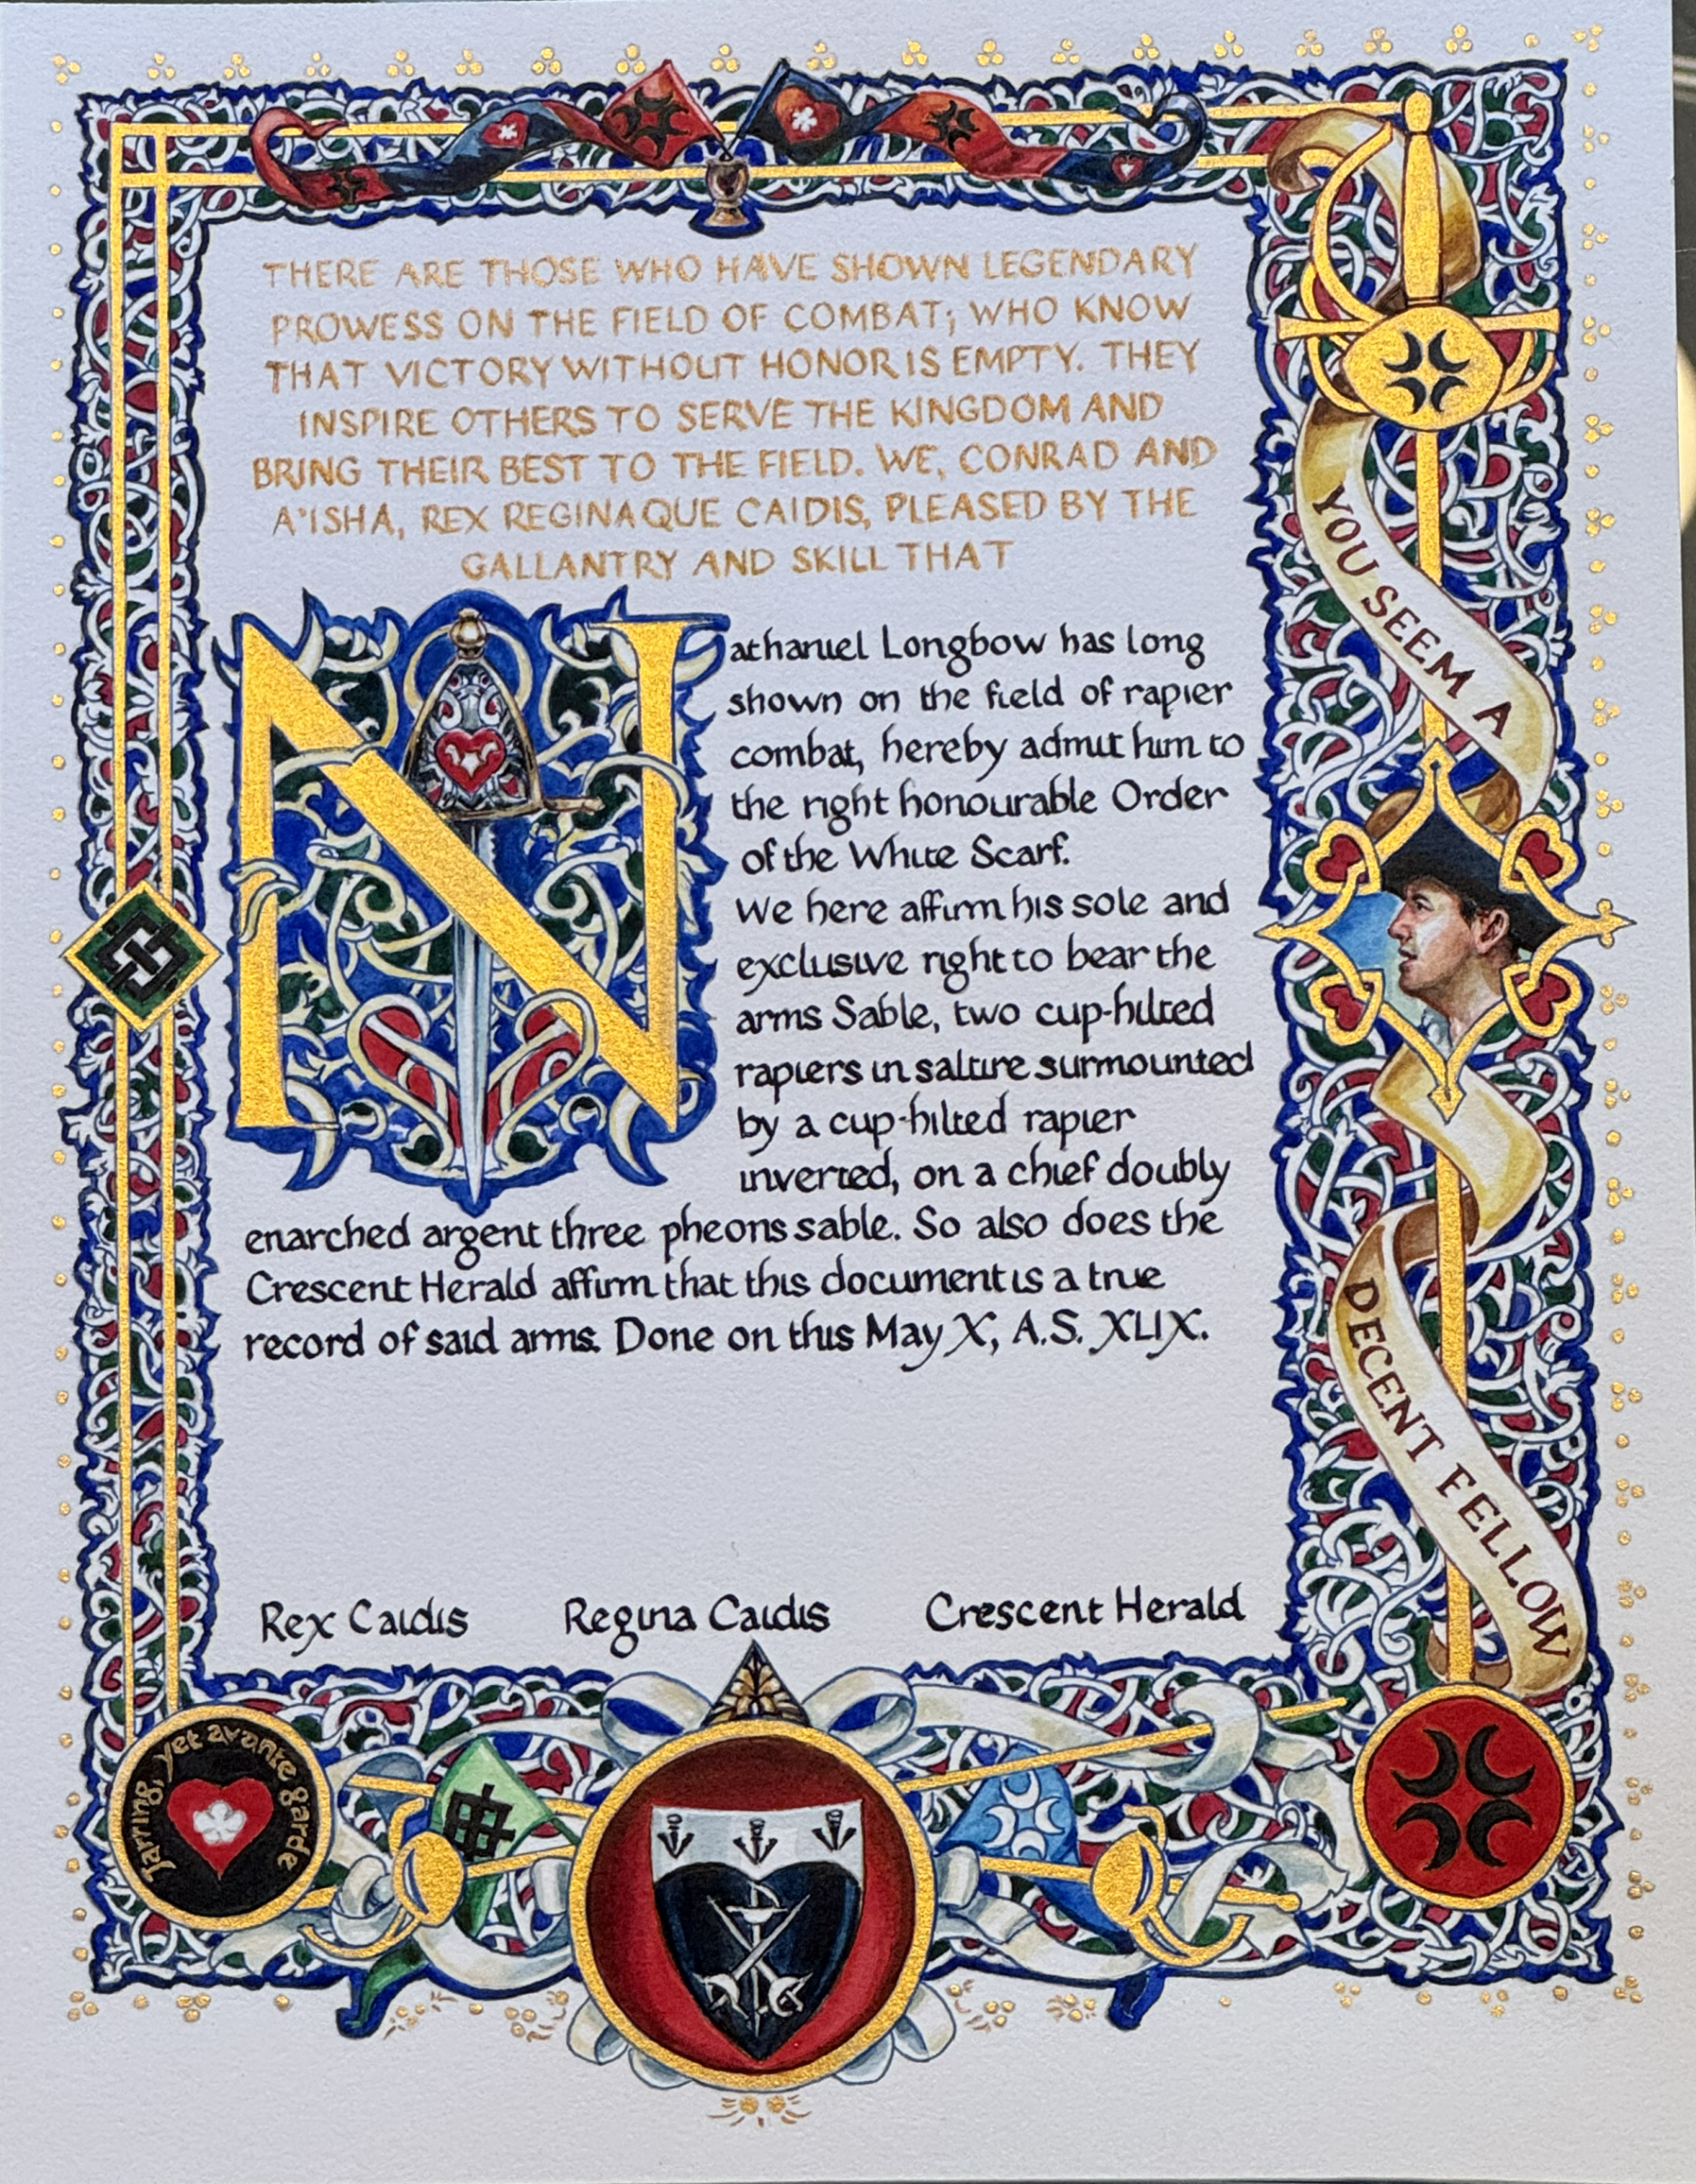 THERE ARE THOSE WHO HAVE SHOWN LEGENDARY
PROWESS ON THE FIELD OF COMBAT; WHO KNOW
THAT VICTORY WITHOUT HONOR IS EMPTY. THEY
INSPIRE OTHERS TO SERVE THE KINGDOM AND
BRING THEIR BEST TO THE FIELD. WE, CONRAD AND
A'ISHA, REX REGINAQUE CAIDIS, PLEASED BY THE
GALLANTRY AND SKILL THAT
Nathanuel Longbow has long
shown on the field of rapier
combat, hereby admit him to
the right honourable Order
of the White Scarf.
We here affirm his sole and
exclusive right to bear the
arms Sable, two cup-hilted
rapiers in saltire surmounted
by a cup-hilted rapier
inverted, on a chief doubly
enarched argent three pheons sable. So also does the
Crescent Herald affirm that this document is a true
record of said arms. Done on this May X, A.S. XLIX.
Rex Caidis Regina Caidis Crescent Herald
YOU SEEM A
DECENT FELLOW
Jarring, yet avante garde